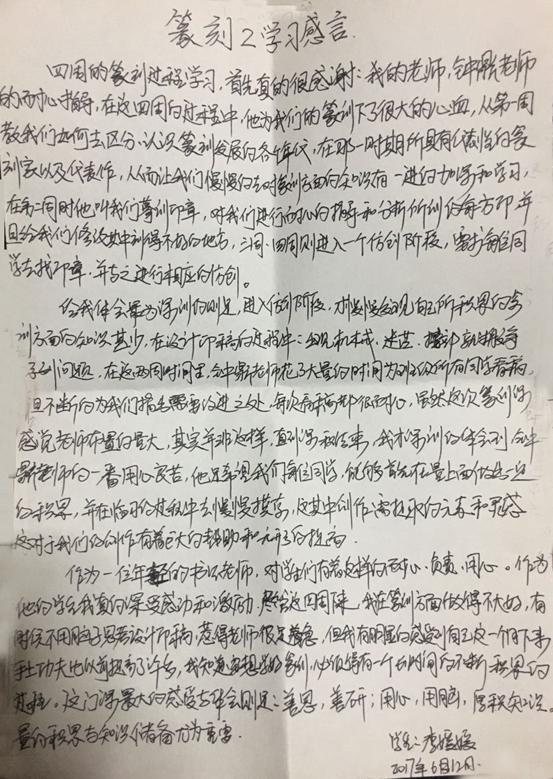 篆刻2学习感言.
四周的篆刻过程学习,首先真的很感谢:我的老师,钟鼎老师
的耐心指导,在这四周的过程中,他为我们的篆刻下了很大的心血,从第一周
教我们如何去区分、认识篆刻发展的各个年代,在那一时期所具有代表性的篆
刻家以及代表作,从而让我们慢慢的去对篆刻方面的知识有一进的加深和学习,
在第二周时他叫我们摹刻印章,对我们进行耐心的指导和分析所刻的每方印并
且给我们修改其中刻得不好的地方,三周、四周则进入一个仿创阶段,需求每位同
学去找印章,并与之进行相应的仿创。
给我体会最为深刻的则是,进入仿创阶段,才慢慢发现自己所积累的篆
刻方面的知识甚少,在设计印稿的过程中:出现机械、迷茫、
等问题,在这两周时间里,钟鼎老师花了大量的时间为班级所有同学看稿,
且不断的为我们指出需要改进之处,每次看稿都很耐心,虽然这次篆刻课
感觉老师布置的量大,其实并非这样,直到课程结束,我才深刻的体会到钟
鼎老师的一番用心良苦,他是希望我们每位同学,能够首先在量上面做出一定
的积累,并在临习的过程中去慢慢摸索,这其中创作需提取的元素和灵感
这对于我们的创作有着巨大的帮助和无形的提高.
作为一位年轻的书法老师,对学生们有着这样的耐心、负责、用心。作为
他的学生我真的深受感动和激励,这四周来,我在篆刻方面做得不太好,有
时候不用脑子思考设计印稿,惹得老师很着急,但我有明显的感觉到自己这一个月下来
手上功夫比以前提高了许多,我知道要想学好篆刻,必须得有一个长时间的不断积累的
过程,这门课最大的感受与体会则是:善思,善研;用心,用脑,厚积知识.
量的积累与知识储备尤为重要.
学生:李媛媛
2017年6月12日.